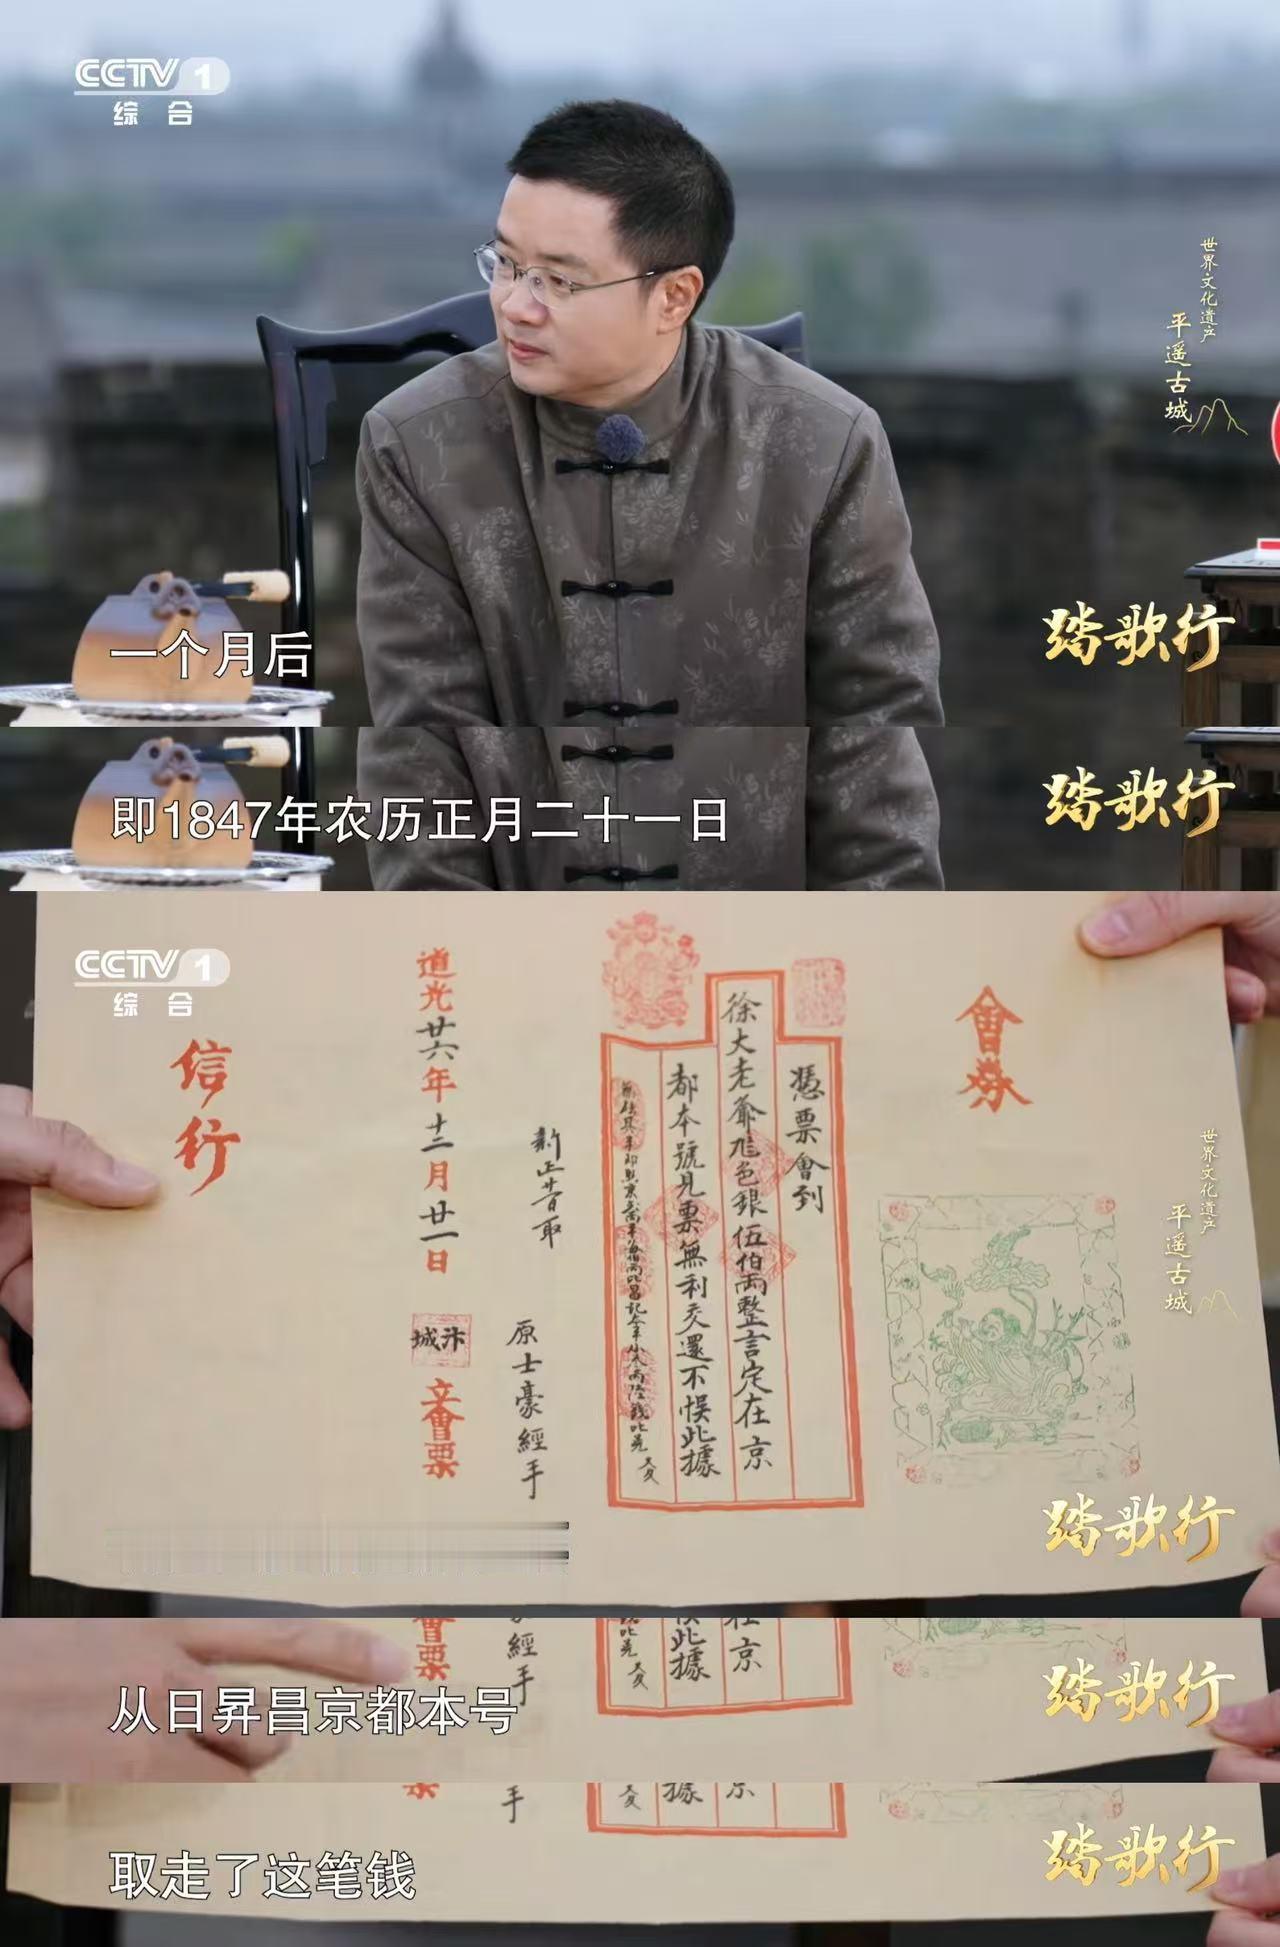 CCTV 1
综合
世界文化遗产
平遥古城
一个月后
踏歌行
即1847年农历正月二十一日
踏歌行
CCTV 1
综合
會券
憑票會到
徐大老爺
色銀伍伯兩整言定在京
都本號見票無利交還不悞此據
新正昔取
原士豪經手
道光廿六年十二月廿一日
汴城
立會票
信行
世界文化遗产
平遥古城
踏歌行
會票
經手
此據
京
从日昇昌京都本号
踏歌行
票
手
據
京
取走了这笔钱
踏歌行